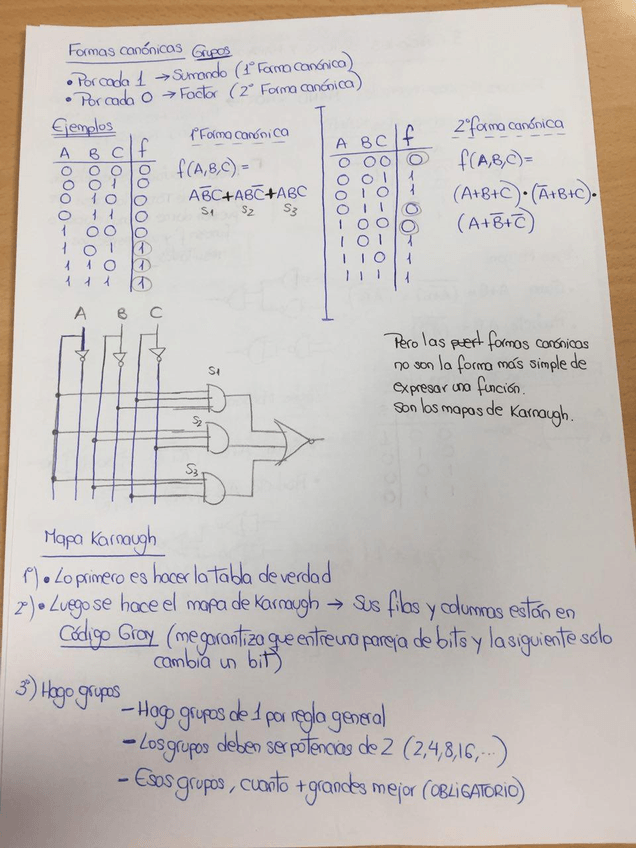 Formas canónicas Grupos
• Por cada 1 → Sumando (1º Forma canónica)
• Por cada 0 → Factor (2º Forma canónica)
Ejemplos
A B C f
0 0 0 0
0 0 1 0
0 1 0 0
0 1 1 0
1 0 0 0
1 0 1 1
1 1 0 1
1 1 1 1
1º Forma canónica
f(A,B,C) =
AB̅C + ABC̅ + ABC
S1 S2 S3
A B C f
0 0 0 0
0 0 1 1
0 1 0 1
0 1 1 0
1 0 0 0
1 0 1 1
1 1 0 1
1 1 1 1
2º forma canónica
f(A,B,C)=
(A+B+C̅)·(A̅+B+C)·
(A+B̅+C̅)
A B C
S1
S2
S3
Pero las formas canónicas
no son la forma más simple de
expresar una función.
Son los mapas de Karnaugh.
Mapa Karnaugh
1º) • Lo primero es hacer la tabla de verdad
2º) • Luego se hace el mapa de Karnaugh → Sus filas y columnas están en
Código Gray (me garantiza que entre una pareja de bits y la siguiente solo
cambia un bit)
3º) Hago grupos
– Hago grupos de 1 por regla general
– Los grupos deben ser potencias de 2 (2,4,8,16,...)
– Esos grupos, cuanto + grandes mejor (OBLIGATORIO)